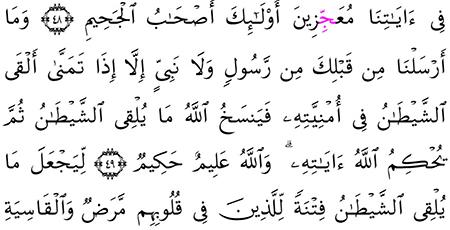 فِى ءَايَـٰتِنَا مُعَجِّزِينَ أُو۟لَـٰٓئِكَ أَصْحَـٰبُ ٱلْجَحِيمِ ٤٨ وَمَا
أَرْسَلْنَا مِن قَبْلِكَ مِن رَّسُولٍ وَلَا نَبِىٍّ إِلَّا إِذَا تَمَنَّىٰ أَلْقَى
ٱلشَّيْطَـٰنُ فِى أُمْنِيَّتِهِۦ فَيَنسَخُ ٱللَّهُ مَا يُلْقِى ٱلشَّيْطَـٰنُ ثُمَّ
يُحْكِمُ ٱللَّهُ ءَايَـٰتِهِۦ ۗ وَٱللَّهُ عَلِيمٌ حَكِيمٌ ٤٩ لِّيَجْعَلَ مَا
يُلْقِى ٱلشَّيْطَـٰنُ فِتْنَةً لِّلَّذِينَ فِى قُلُوبِهِم مَّرَضٌ وَٱلْقَاسِيَةِ